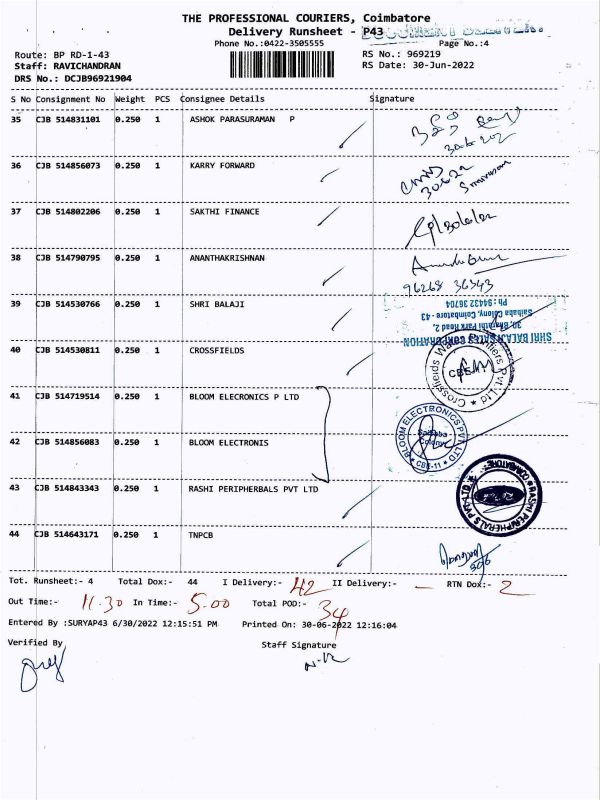 THE PROFESSIONAL COURIERS, Coimbatore
Delivery Runsheet - P43
Phone No.:0422-3505555 Page No.:4
Route: BP RD-1-43 RS No.: 969219
Staff: RAVICHANDRAN RS Date: 30-Jun-2022
DRS No.: DCJB96921904
S No Consignment No Weight PCS Consignee Details Signature
35 CJB 514831101 0.250 1 ASHOK PARASURAMAN P
36 CJB 514856073 0.250 1 KARRY FORWARD
37 CJB 514802206 0.250 1 SAKTHI FINANCE
38 CJB 514790795 0.250 1 ANANTHAKRISHNAN
96268 36343
39 CJB 514530766 0.250 1 SHRI BALAJI
Ph : 94432 36704
Saibaba Colony, Coimbatore -43
30, Bharathi Park Road 2,
SHRI BALAJI SALES CORPORATION
40 CJB 514530811 0.250 1 CROSSFIELDS
41 CJB 514719514 0.250 1 BLOOM ELECRONICS P LTD
BLOOM ELECTRONICS PVT LTD
Saibaba
Colony
CBE-11
42 CJB 514856083 0.250 1 BLOOM ELECTRONIS
43 CJB 514843343 0.250 1 RASHI PERIPHERBALS PVT LTD
RASHI PERIPHERALS PVT. LTD. COIMBATORE
44 CJB 514643171 0.250 1 TNPCB
Tot. Runsheet:- 4 Total Dox:- 44 I Delivery:- 42 II Delivery:- — RTN Dox:- 2
Out Time:- 11.30 In Time:- 5.00 Total POD:- 34
Entered By :SURYAP43 6/30/2022 12:15:51 PM Printed On: 30-06-2022 12:16:04
Verified By Staff Signature